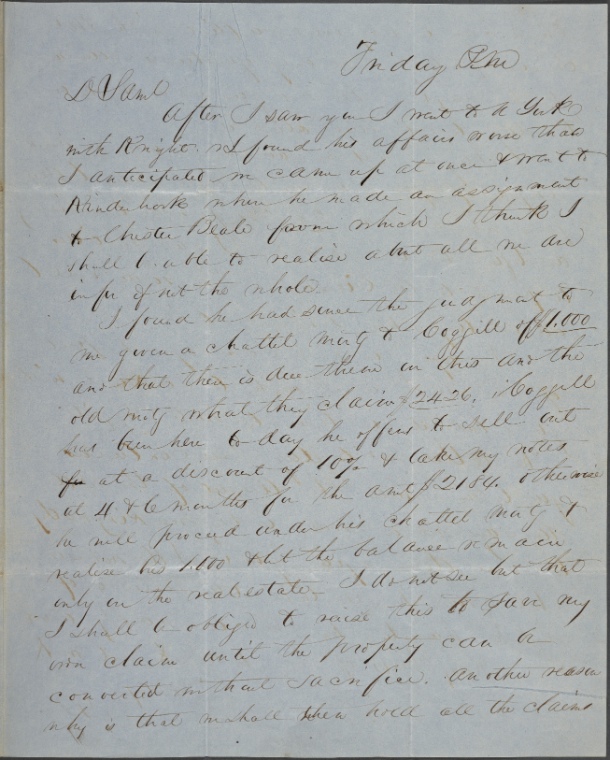 Friday P.M
D Saml
After I saw you I went to N York
with Knight. & I found his affairs worse than
I anticipated we came up at once & went to
Kinderhook when he made an assignment
to Chester Beale from which I think I
shall b. able to realise about all we are
in for if not the whole
I found he had since the judgment to
me given a chattel mortg to Coggill of $1.000
and that there is due them in this and the
old mortg what they claim $2426. Coggill
has been here to-day he offers to sell out
at a discount of 10% & take my notes
at 4 & 6 months for the amt $2184. otherwise
he will proceed under his chattel mortg &
realise his 1.000 & let the balance remain
only in the real estate. I do not see but that
I shall b obliged to raise this to save my
own claim until the property can be
converted without sacrifice. Another reason
why is that we shall then hold all the claims